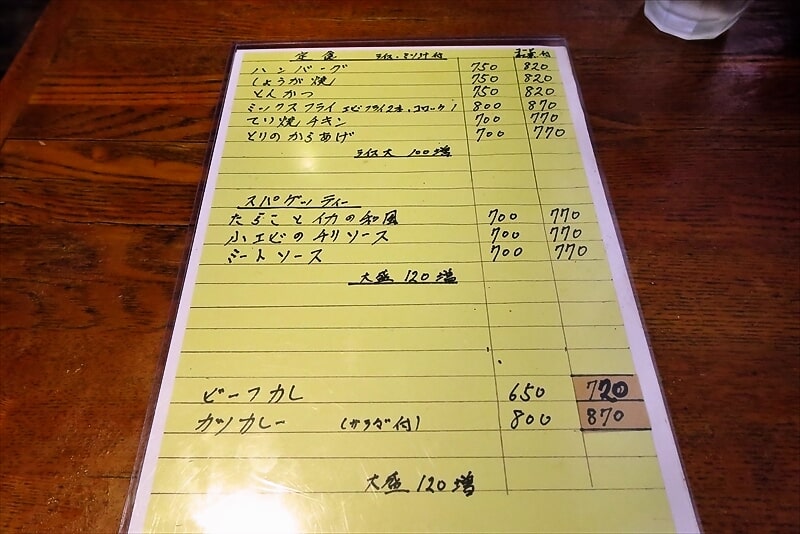 定食 ライス・ミソ汁付
ハンバーグ 750 820
しょうが焼 750 820
とんかつ 750 820
ミックスフライ エビフライ2本、コロッケ1 800 870
てり焼チキン 700 770
とりのからあげ 700 770
ライス大 100増
スパゲッティー
たらことイカの和風 700 770
小エビのチリソース 700 770
ミートソース 700 770
大盛 120増
ビーフカレ 650 720
カツカレー (サラダ付) 800 870
大盛 120増